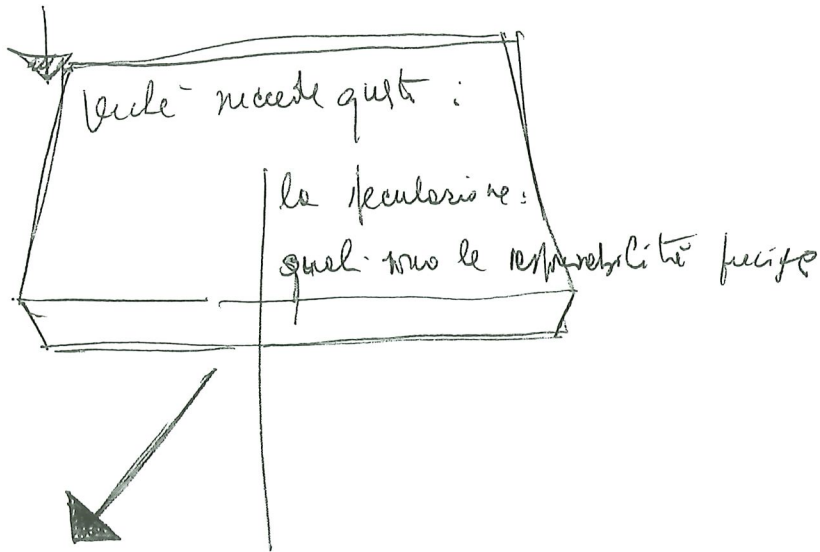 succede questo :
la speculazione :
quali sono le responsabilità precise